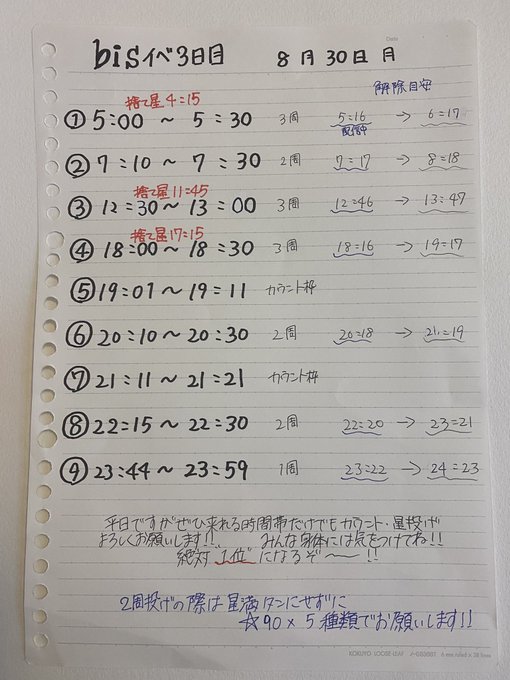 Date
bisイベ3日目 8月30日 月
解除目安
捨て星4:15
① 5:00 ~ 5:30 3周 5:16 → 6:17
配信中
② 7:10 ~ 7:30 2周 7:17 → 8:18
捨て星11:45
③ 12:30 ~ 13:00 3周 12:46 → 13:47
捨て星17:15
④ 18:00 ~ 18:30 3周 18:16 → 19:17
⑤ 19:01 ~ 19:11 カウント枠
⑥ 20:10 ~ 20:30 2周 20:18 → 21:19
⑦ 21:11 ~ 21:21 カウント枠
⑧ 22:15 ~ 22:30 2周 22:20 → 23:21
⑨ 23:44 ~ 23:59 1周 23:22 → 24:23
平日ですがぜひ来れる時間帯だけでもカウント・星投げ
よろしくお願いします!! みんな身体には気をつけてね!!
絶対"1位"になるぞ〜!!
2周投げの際は星満タンにせずに
☆90×5種類でお願いします!!
KOKUYO LOOSE-LEAF 6 mm ruled